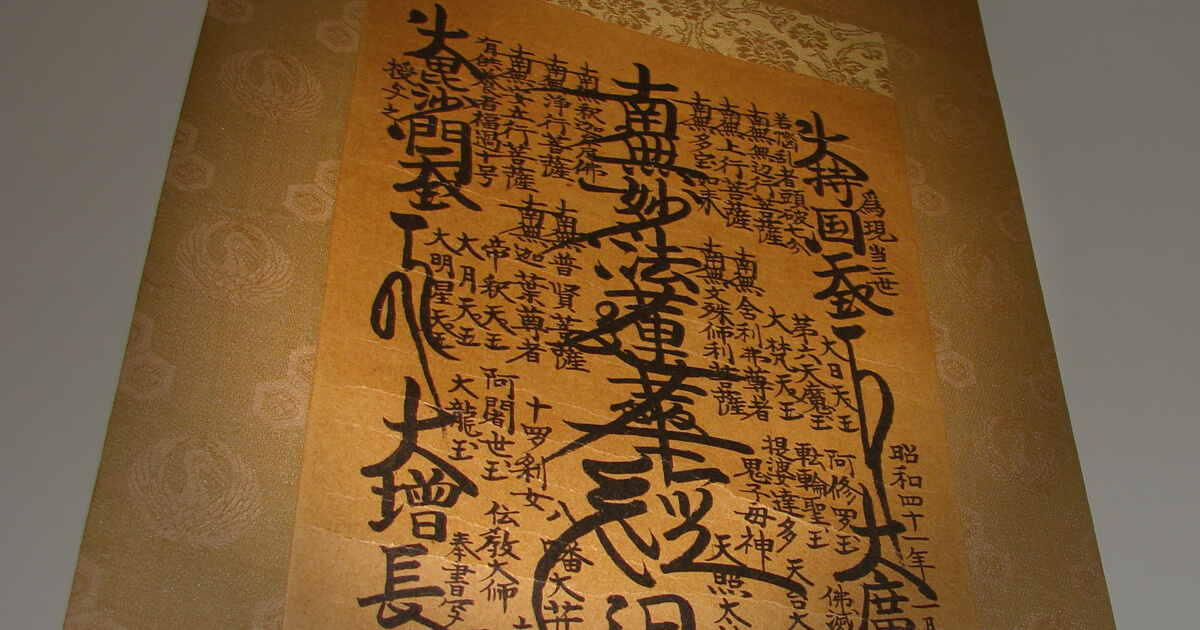 為現当二世
昭和四十一年一月
大持国天王
大廣
大日天王
阿修羅王
佛滅
若悩乱者頭破七分
第六天魔王
転輪聖王
天台大
南無無辺行菩薩
大梵天王
提婆達多
南無上行菩薩
南無舍利弗尊者
鬼子母神
南無多宝如来
南無文殊師利菩薩
天照太
南無妙法蓮華経
日
南無釈迦牟尼佛
南無浄行菩薩
南無普賢菩薩
八幡大菩
南無安立行菩薩
南無迦葉尊者
十羅刹女
有供養者福過十号
帝釈天王
阿闍世王
伝教大師
大月天王
大龍王
奉書写
大明星天王
大毘沙門天王
大増長
授与之